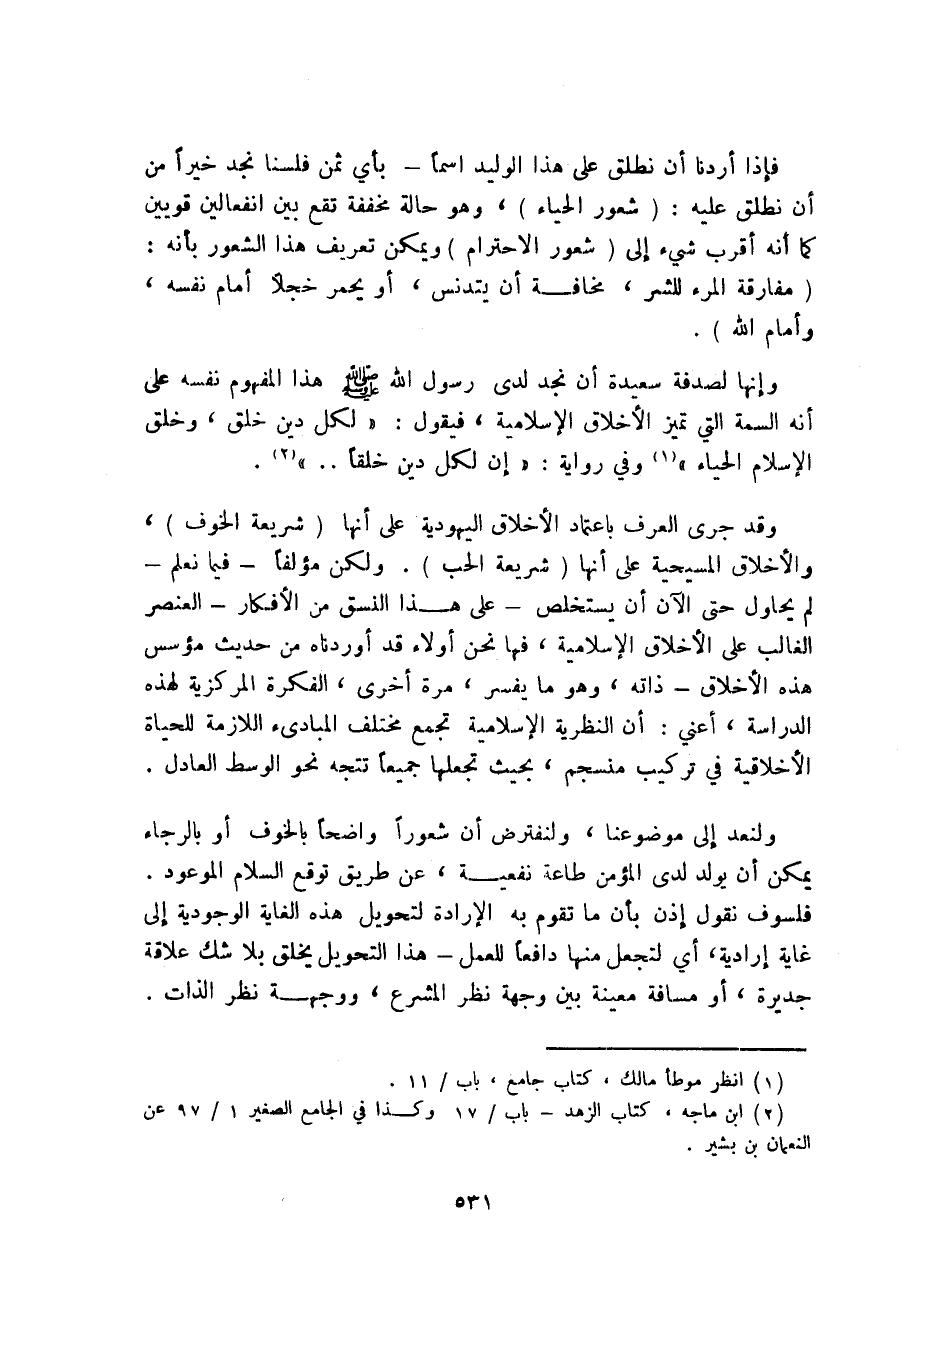 فإذا أردنا أن نطلق على هذا الوليد اسماً – بأي ثمن فلسنا نجد خيراً من
أن نطلق عليه : ( شعور الحياء ) ، وهو حالة مخففة تقع بين انفعالين قويين
كما أنه أقرب شيء إلى ( شعور الاحترام ) ويمكن تعريف هذا الشعور بأنه :
( مفارقة المرء للشر ، مخافـــة أن يتدنس ، أو يحمر خجلاً أمام نفسه ،
وأمام الله ) .
وإنها لصدفة سعيدة أن نجد لدى رسول الله ﷺ هذا المفهوم نفسه على
أنه السمة التي تميز الأخلاق الإسلامية ، فيقول : « لكل دين خلق ، وخلق
الإسلام الحياء »(١) وفي رواية : « إن لكل دين خلقاً .. »(٢) .
وقد جرى العرف باعتماد الأخلاق اليهودية على أنها ( شريعة الخوف ) ،
والأخلاق المسيحية على أنها ( شريعة الحب ) . ولكن مؤلفاً – فيما نعلم –
لم يحاول حتى الآن أن يستخلص – على هـــذا النسق من الأفكار – العنصر
الغالب على الأخلاق الإسلامية ، فها نحن أولاء قد أوردناه من حديث مؤسس
هذه الأخلاق – ذاته ، وهو ما يفسر ، مرة أخرى ، الفكرة المركزية لهذه
الدراسة ، أعني : أن النظرية الإسلامية تجمع مختلف المبادىء اللازمة للحياة
الأخلاقية في تركيب منسجم ، بحيث تجعلها جميعاً تتجه نحو الوسط العادل .
ولنعد إلى موضوعنا ، ولنفترض أن شعوراً واضحاً بالخوف أو بالرجاء
يمكن أن يولد لدى المؤمن طاعة نفعيـــة ، عن طريق توقع السلام الموعود .
فلسوف نقول إذن بأن ما تقوم به الإرادة لتحويل هذه الغاية الوجودية إلى
غاية إرادية، أي لتجعل منها دافعاً للعمل – هذا التحويل يخلق بلا شك علاقة
جديرة ، أو مسافة معينة بين وجهة نظر المشرع ، ووجهـــة نظر الذات .
(١) انظر موطأ مالك ، كتاب جامع ، باب / ١١ .
(٢) ابن ماجه ، كتاب الزهد – باب / ١٧ وكـــذا في الجامع الصغير ١ / ٩٧ عن
النعمان بن بشير .
٥٣١